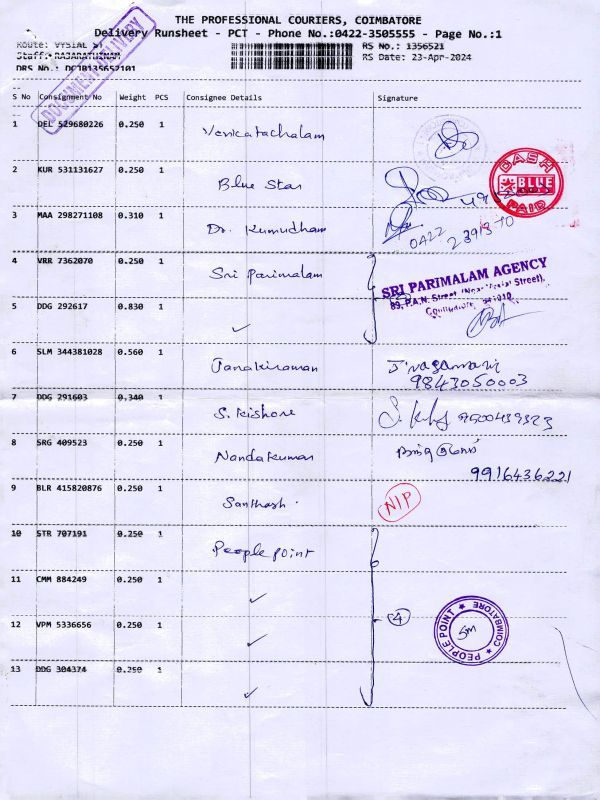 THE PROFESSIONAL COURIERS, COIMBATORE
Delivery Runsheet - PCT - Phone No.:0422-3505555 - Page No.:1
Route: VYSIAL ST RS No.: 1356521
Staff: RAJARATHINAM RS Date: 23-Apr-2024
DRS No.: DCJB135652101
DOCUMENT DELIVERY
S No Consignment No Weight PCS Consignee Details Signature
1 DEL 529680226 0.250 1 Venkatachalam
2 KUR 531131627 0.250 1 Blue Star
CASH BLUE PAID
3 MAA 298271108 0.310 1 Dr. Kumudham 0422 2391370
4 VRR 7362070 0.250 1 Sri Parimalam
SRI PARIMALAM AGENCY
89, P.A.N. Street, (Near Vysial Street),
5 DDG 292617 0.830 1 ✓
6 SLM 344381028 0.560 1 Janakiraman
9843050003
7 DDG 291603 0.340 1 S. Kishore
8 SRG 409523 0.250 1 Nandakumar
9916436221
9 BLR 415820876 0.250 1 Santhosh. NIP
10 STR 707191 0.250 1 People point
11 CMM 884249 0.250 1 ✓
12 VPM 5336656 0.250 1 ✓ 4
PEOPLE POINT ★ COIMBATORE ★
13 DDG 304374 0.250 1 ✓